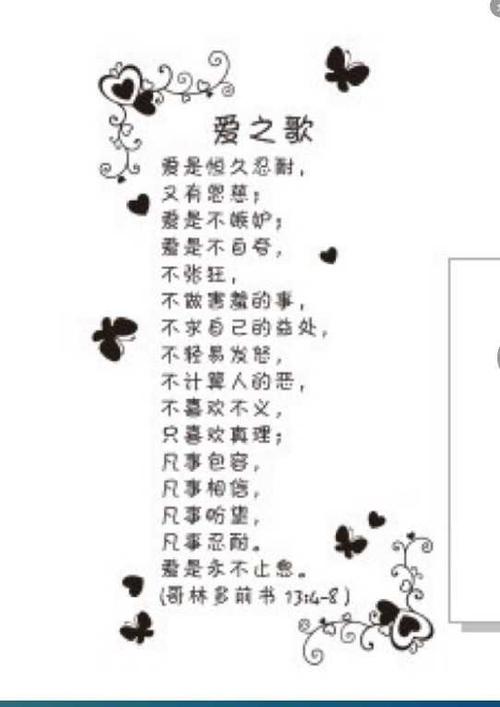 爱之歌
爱是恒久忍耐，
又有恩慈；
爱是不嫉妒；
爱是不自夸，
不张狂，
不做害羞的事，
不求自己的益处，
不轻易发怒，
不计算人的恶，
不喜欢不义，
只喜欢真理；
凡事包容，
凡事相信，
凡事盼望，
凡事忍耐。
爱是永不止息。
(哥林多前书 13:4-8)